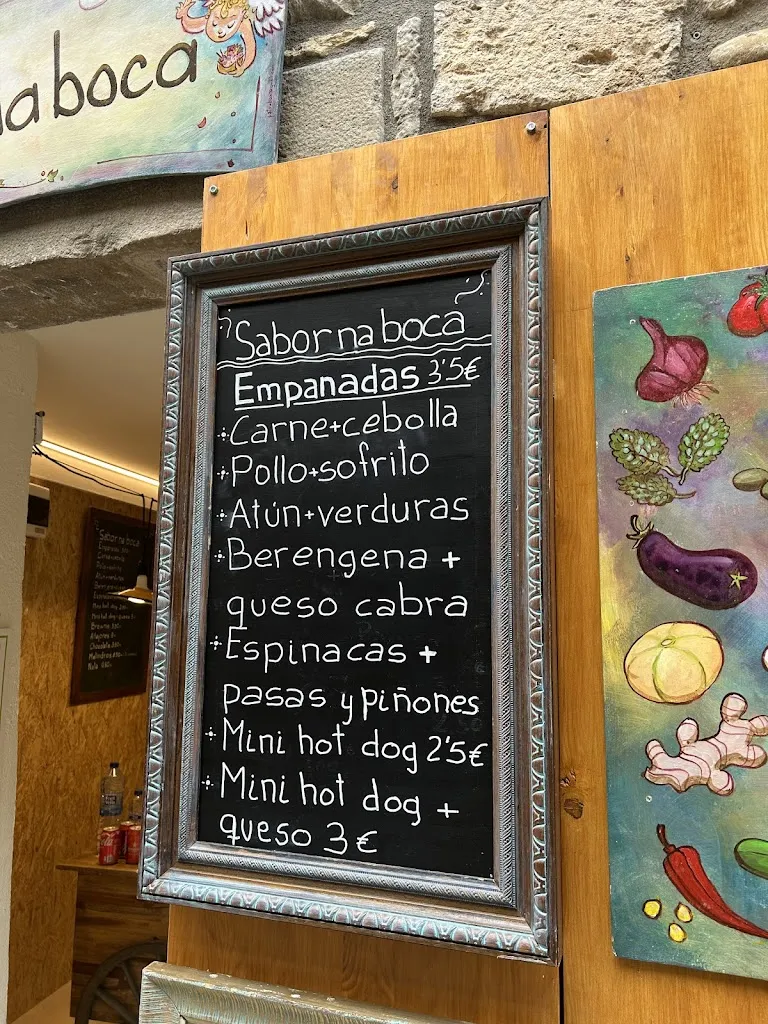 na boca
Sabor na boca
Empanadas 3'5€
Carne+cebolla
Pollo+sofrito
Atún+verduras
Berengena +
queso cabra
Espinacas +
pasas y piñones
Mini hot dog 2'5€
Mini hot dog +
queso 3€
Sabor na boca